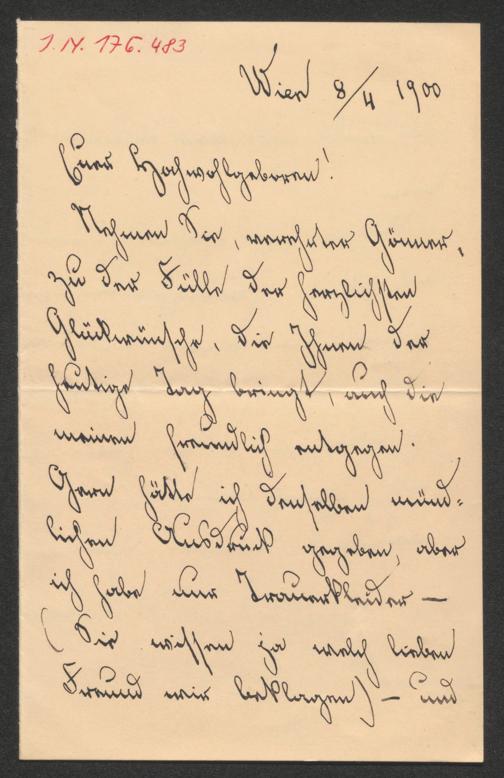 I. N. 176.483
Wien 8/4 1900
Euer Hochwohlgeboren!
Nehmen Sie, verehrter Gönner,
zu der Fülle der herzlichsten
Glückwünsche, die Ihnen der
heutige Tag bringt, auch die
meinen freundlich entgegen.
Gern hätte ich denselben münd-
lichen Ausdruck gegeben, aber
ich habe nur Trauerkleider —
(Sie wissen ja welch lieben
Freund wir beklagen) — und